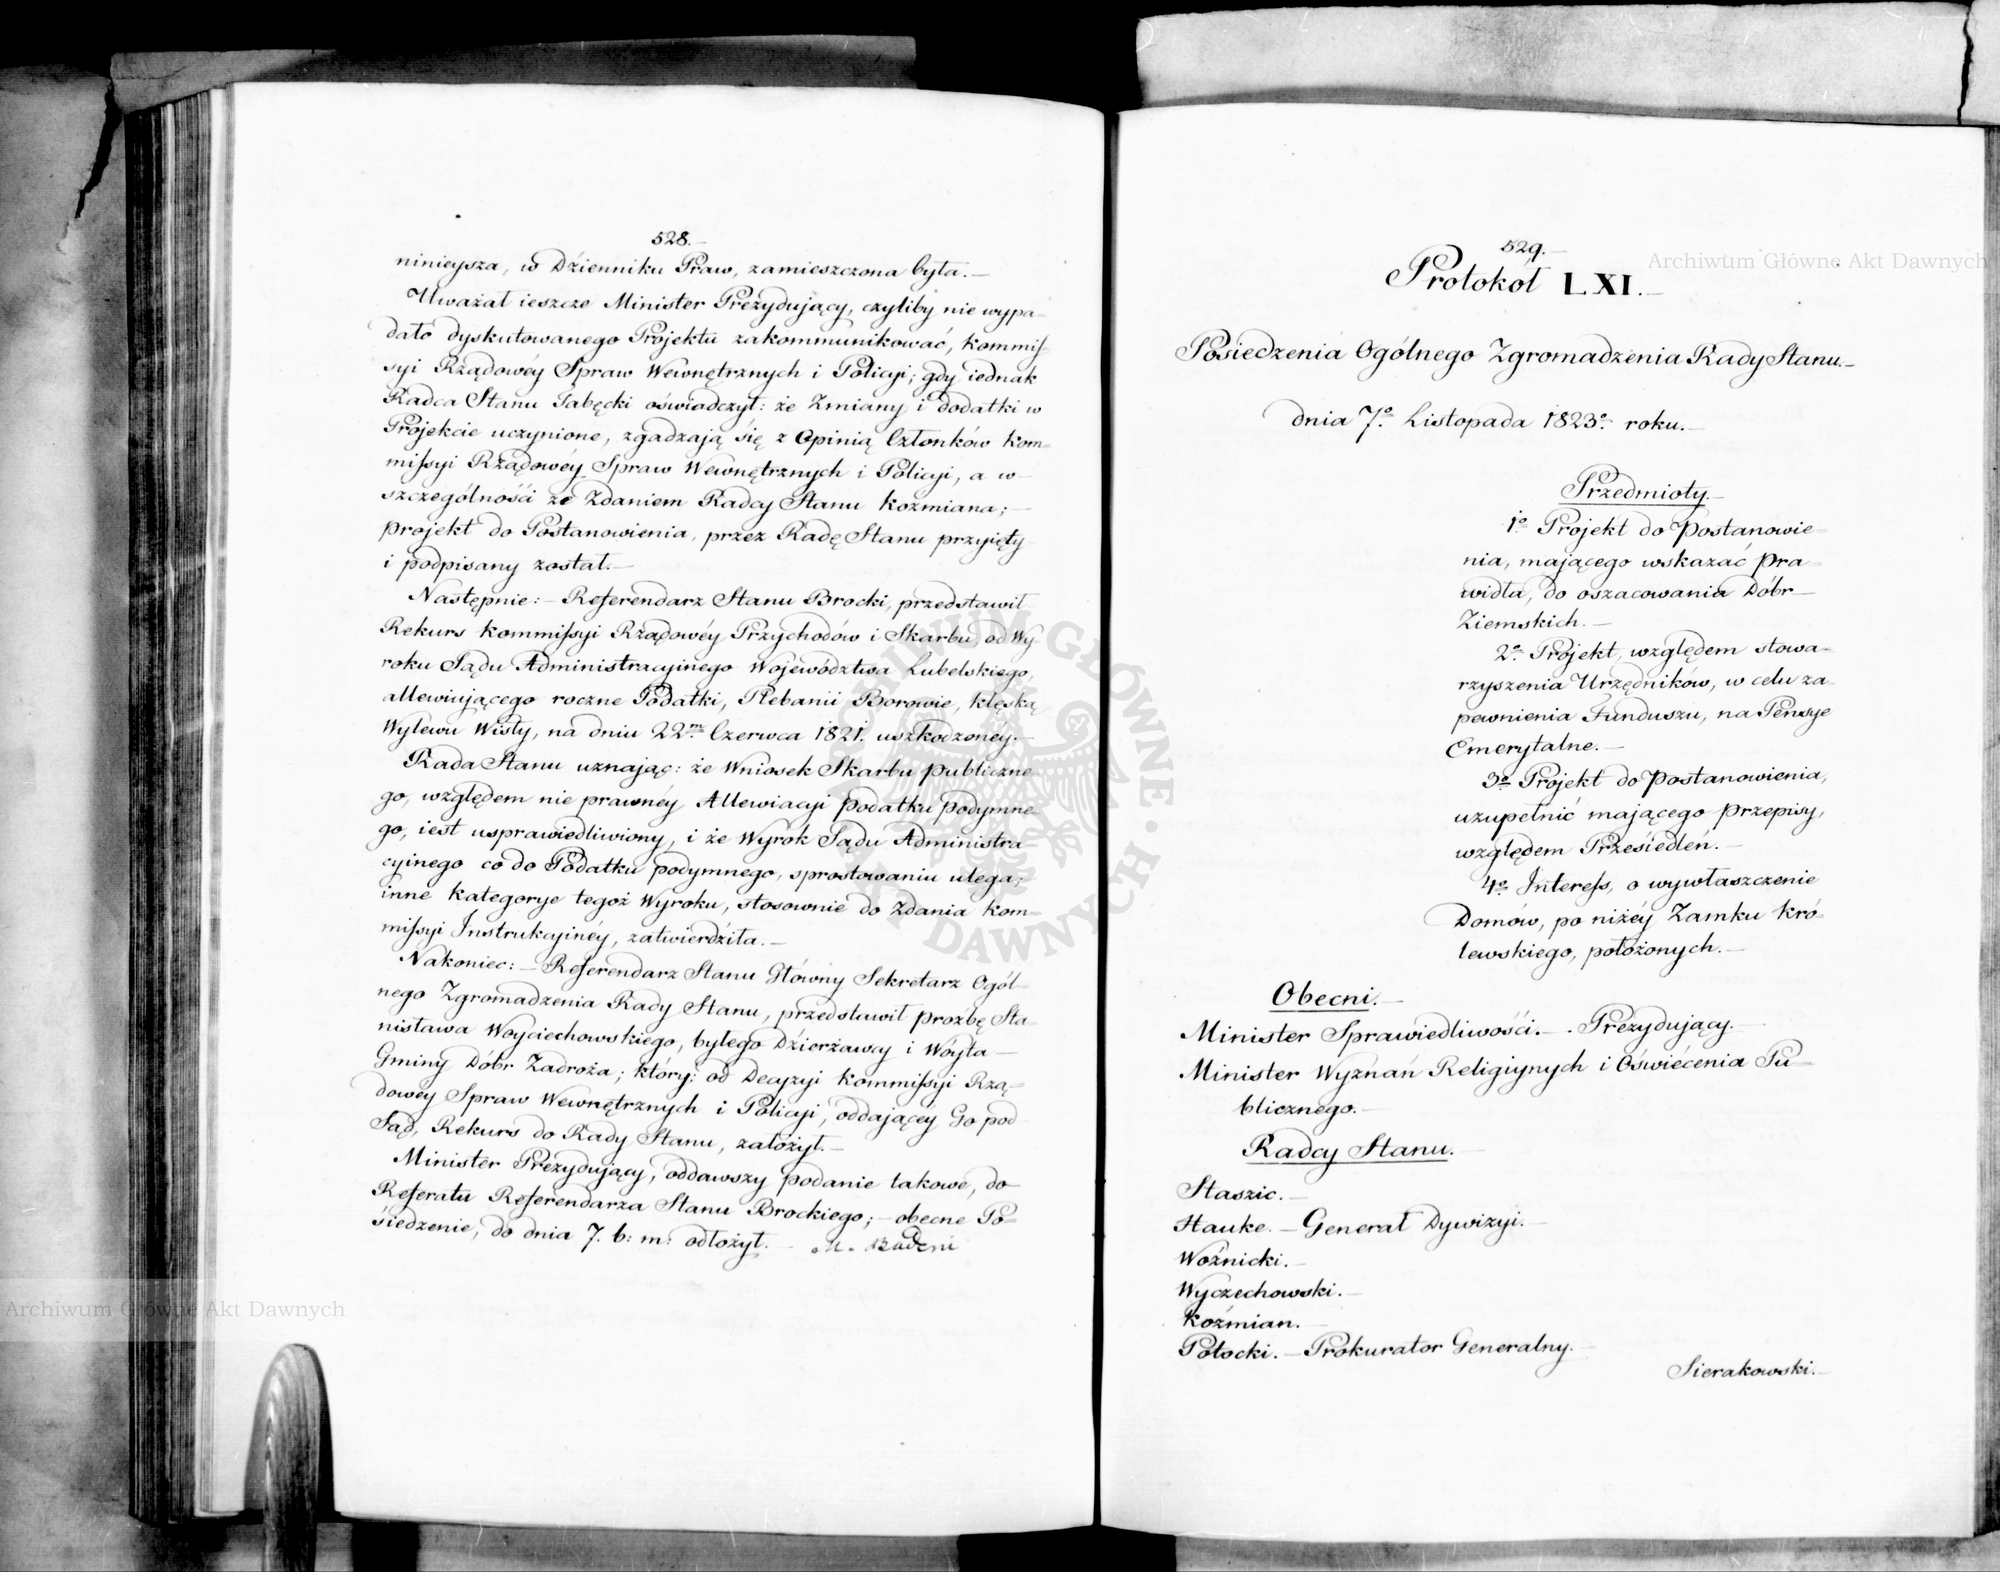 528.
ninieysza, w Dzienniku Praw, zamieszczona była.
Uważał ieszcze Minister Prezydujący, czyliby nie wypa-
dało dyskutowanego Projektu zakommunikować, Kommis-
syi Rządowéy Spraw Wewnętrznych i Policyi; gdy iednak
Radca Stanu Tabęcki oświadczył: że Zmiany i dodatki w
Projekcie uczynione, zgadzają się z Opinią Członków Kom-
missyi Rządowéy Spraw Wewnętrznych i Policyi, a w
szczególności ze Zdaniem Radcy Stanu Kozmiana;
projekt do Postanowienia, przez Radę Stanu przyięty
i podpisany został.
Następnie: Referendarz Stanu Brocki, przedstawił
Rekurs Kommissyi Rządowéy Przychodów i Skarbu, od Wy-
roku Sądu Administracyinego Województwa Lubelskiego,
allewiującego roczne Podatki, Plebanii Borowie, klęską
Wylewu Wisły, na dniu 22m Czerwca 1821. uszkodzonéy.
Rada Stanu uznając: że Wniosek Skarbu publiczne-
go, względem nie prawnéy Allewiacyi podatku podymne-
go, iest usprawiedliwiony, i że Wyrok Sądu Administra-
cyinego co do Podatku podymnego, sprostowaniu ulega;
inne kategorye tegoż Wyroku, stosownie do Zdania Kom-
missyi Instrukcyinéy, zatwierdziła.
Nakoniec: Referendarz Stanu Główny Sekretarz Ogól-
nego Zgromadzenia Rady Stanu, przedstawił prozbę Sta-
nisława Woyciechowskiego, byłego Dzierżawcy i Wóyta
Gminy Dóbr Zadroża; który: od Decyzyi Kommissyi Rzą-
dowéy Spraw Wewnętrznych i Policyi, oddającéy Go pod
Sąd, Rekurs do Rady Stanu, założył.
Minister Prezydujący, oddawszy podanie takowe, do
Referatu Referendarza Stanu Brockiego; obecne Po-
siedzenie, do dnia 7. b: m: odłożył. M. Badeni
529.
Protokół LXI.
Posiedzenia Ogólnego Zgromadzenia Rady Stanu.
dnia 7o Listopada 1823o roku.
Przedmioty.
1o Projekt do Postanowie-
nia, mającego wskazać Pra-
widła, do oszacowania Dóbr
Ziemskich.
2o Projekt, względem stowa-
rzyszenia Urzędników, w celu za-
pewnienia Funduszu, na Pensye
Emerytalne.
3o Projekt do Postanowienia,
uzupełnić mającego Przepisy,
względem Przesiedleń.
4o Interess, o wywłaszczenie
Domów, po niżéy Zamku Kró-
lewskiego, położonych.
Obecni.
Minister Sprawiedliwości. Prezydujący.
Minister Wyznań Religiynych i Oświécenia Pu-
blicznego.
Radcy Stanu.
Staszic.
Hauke. Generał Dywizyi.
Woźnicki.
Wyczechowski.
Koźmian.
Potocki. Prokurator Generalny.
Sierakowski.
Archiwum Główne Akt Dawnych
Archiwum Główne Akt Dawnych
ARCHIWUM GŁÓWNE AKT DAWNYCH